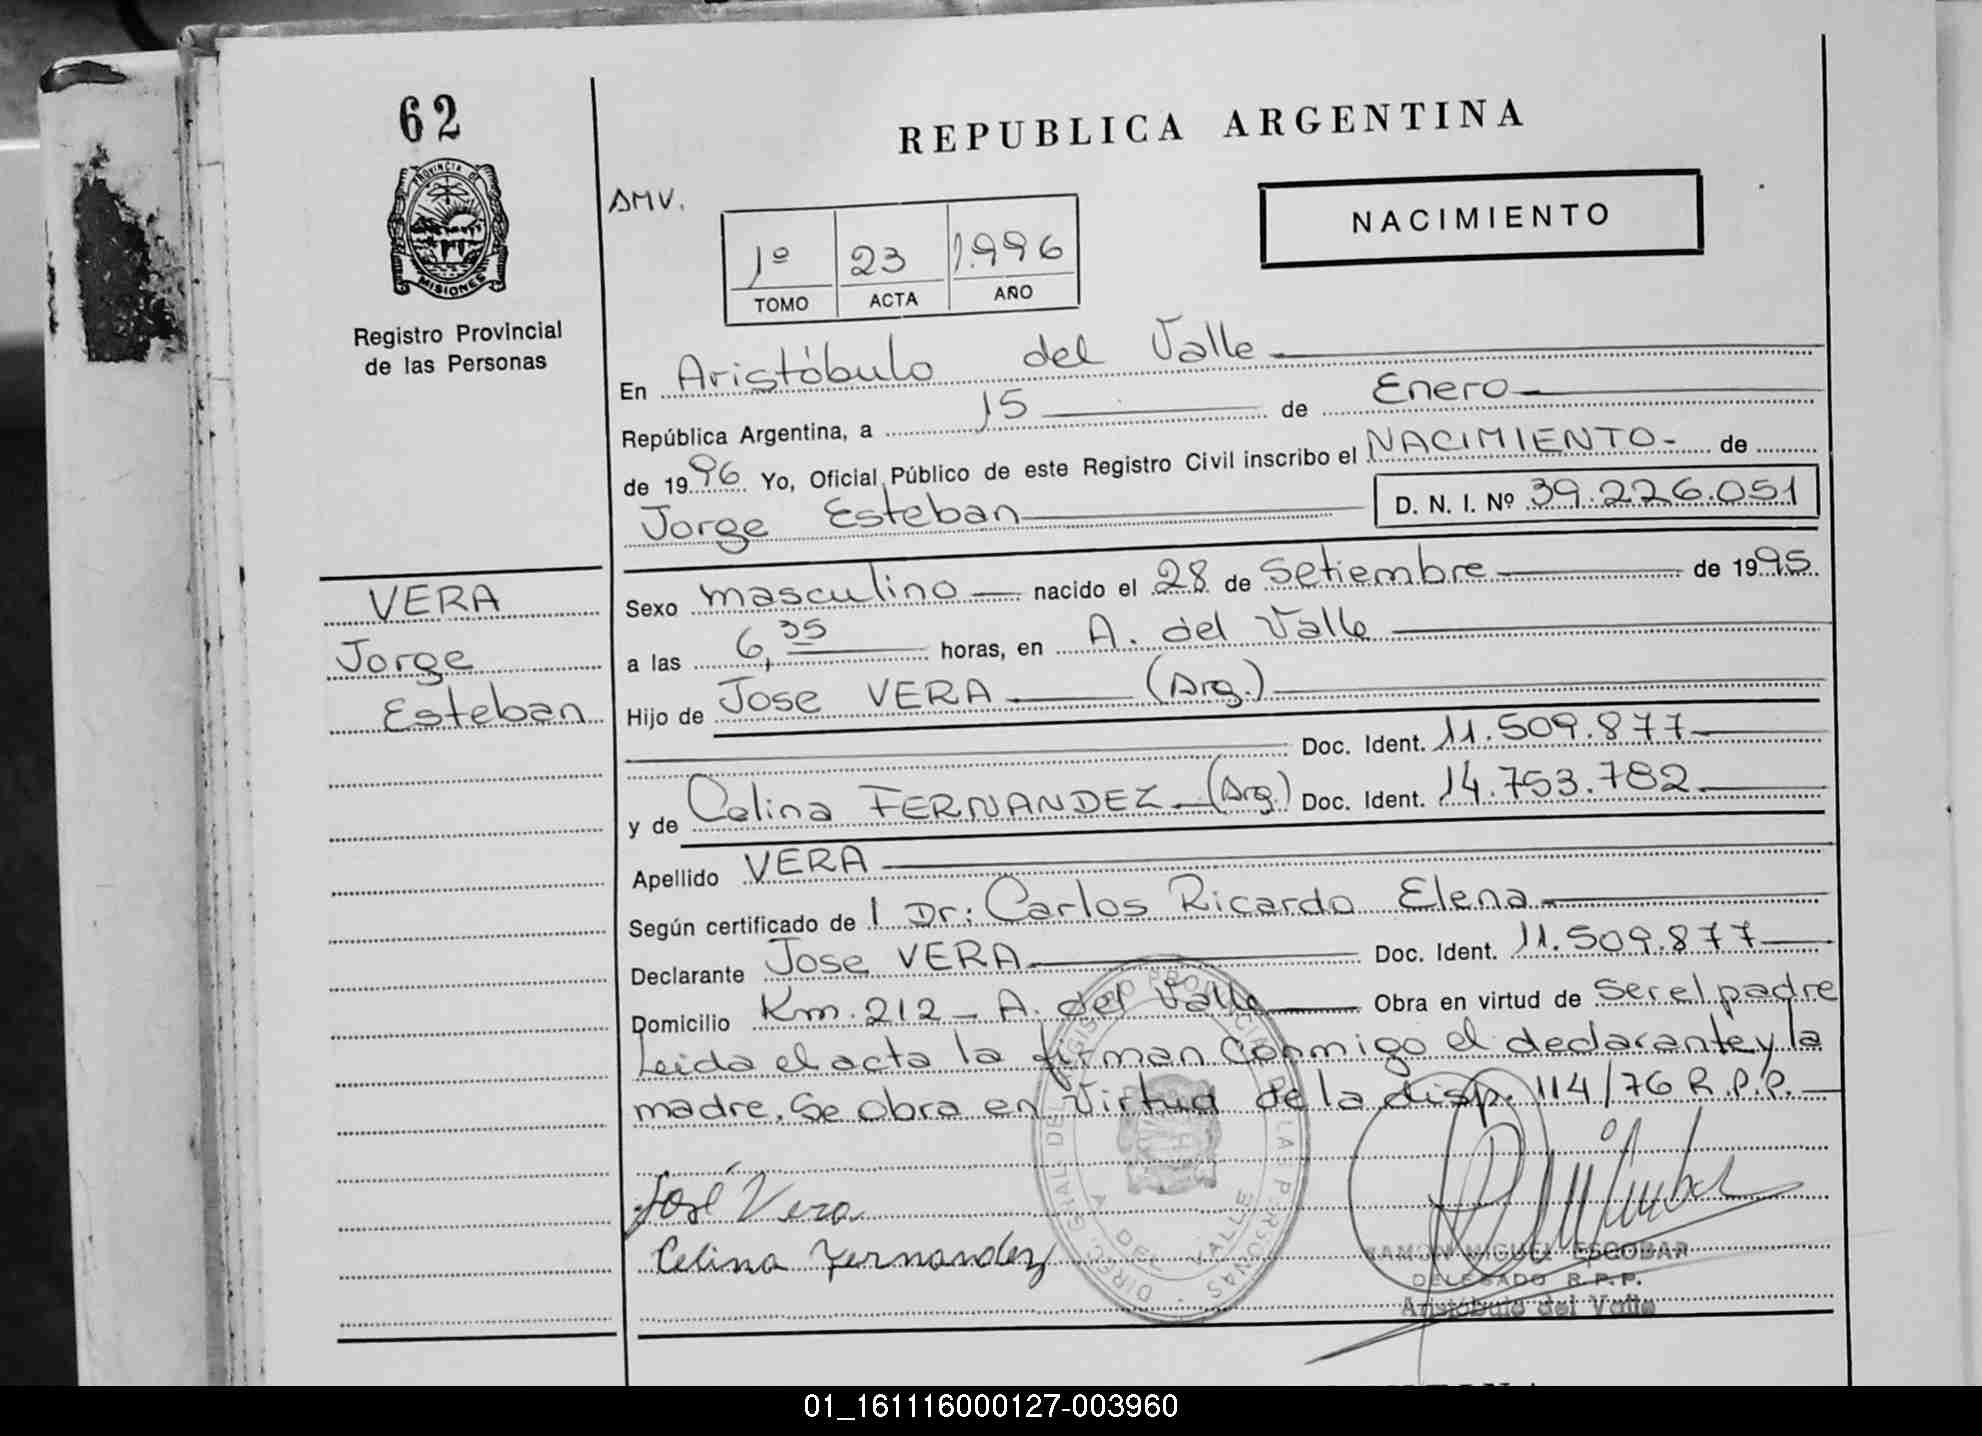 62
REPUBLICA ARGENTINA
PROVINCIA DE
MISIONES
AMV.
NACIMIENTO
1º 23 1.996
TOMO ACTA AÑO
Registro Provincial
de las Personas
En Aristóbulo del Valle
República Argentina, a 15 de Enero
de 1996 Yo, Oficial Público de este Registro Civil inscribo el NACIMIENTO- de
Jorge Esteban D. N. I. Nº 39.226.051
VERA
Jorge
Esteban
Sexo masculino nacido el 28 de Setiembre de 1995
a las 6,35 horas, en A. del Valle
Hijo de Jose VERA (Arg.)
Doc. Ident. 11.509.877
y de Celina FERNANDEZ (Arg.) Doc. Ident. 14.753.782
Apellido VERA
Según certificado de l Dr: Carlos Ricardo Elena
Declarante Jose VERA Doc. Ident. 11.509.877
Domicilio Km. 212 - A. del Valle Obra en virtud de Ser el padre
Leida el acta la firman Conmigo el declarante y la
madre. Se obra en Virtud de la disp. 114/76 R.P.P.
José Vera
Celina Fernandez
DIREC. GRAL. DEL REGISTRO PROVINCIAL DE LAS PERSONAS
A. DEL VALLE
RAMON MIGUEL ESCOBAR
DELEGADO R.P.P.
Aristóbulo del Valle
01_161116000127-003960